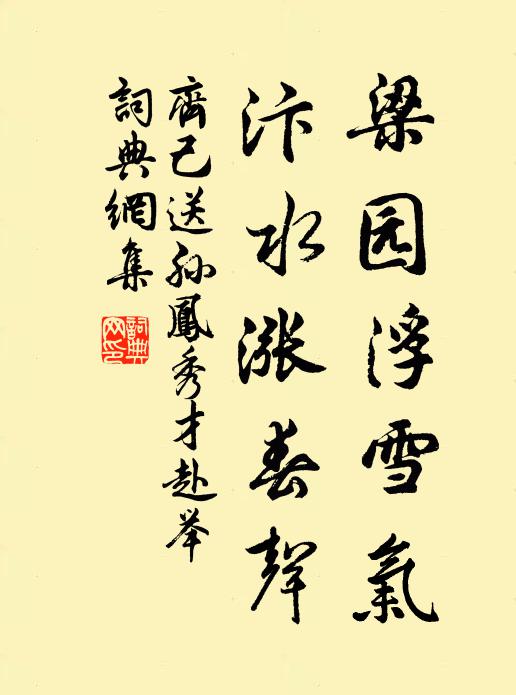 梁园浮雪氣
汴水漲春聲
齊己送孙鳳秀才赴举
詞典網集
詞典網印